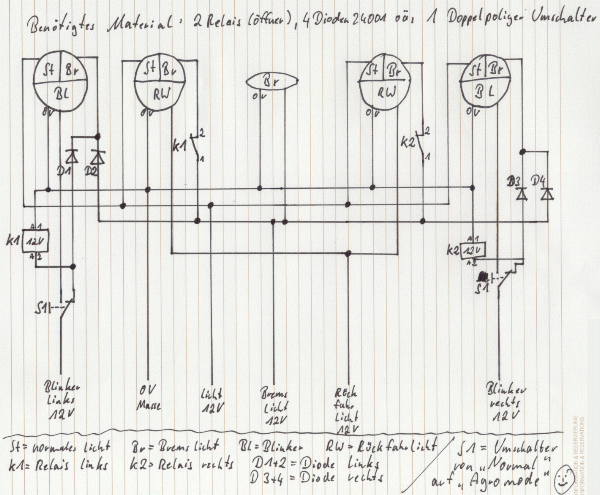 Benötigtes Material: 2 Relais (öffner), 4 Dioden 24001 oä, 1 Doppelpoliger Umschalter
St Br St Br Br St Br St Br
BL RW 0V RW BL
0V 0V 0V 0V 0V
K1 2 1 K2 2 1
D1 D2 D3 D4
K1 A1 12V A2
K2 A1 12V A2
S1 S1
Blinker links 12V
0V Masse
Licht 12V
Brems licht 12V
Rück fahr licht 12V
Blinker rechts 12V
St = normales Licht Br = Bremslicht BL = Blinker RW = Rückfahrlicht S1 = Umschalter
K1 = Relais links K2 = Relais rechts D1+2 = Diode links von „Normal"
D3+4 = Diode rechts auf „Agromode"